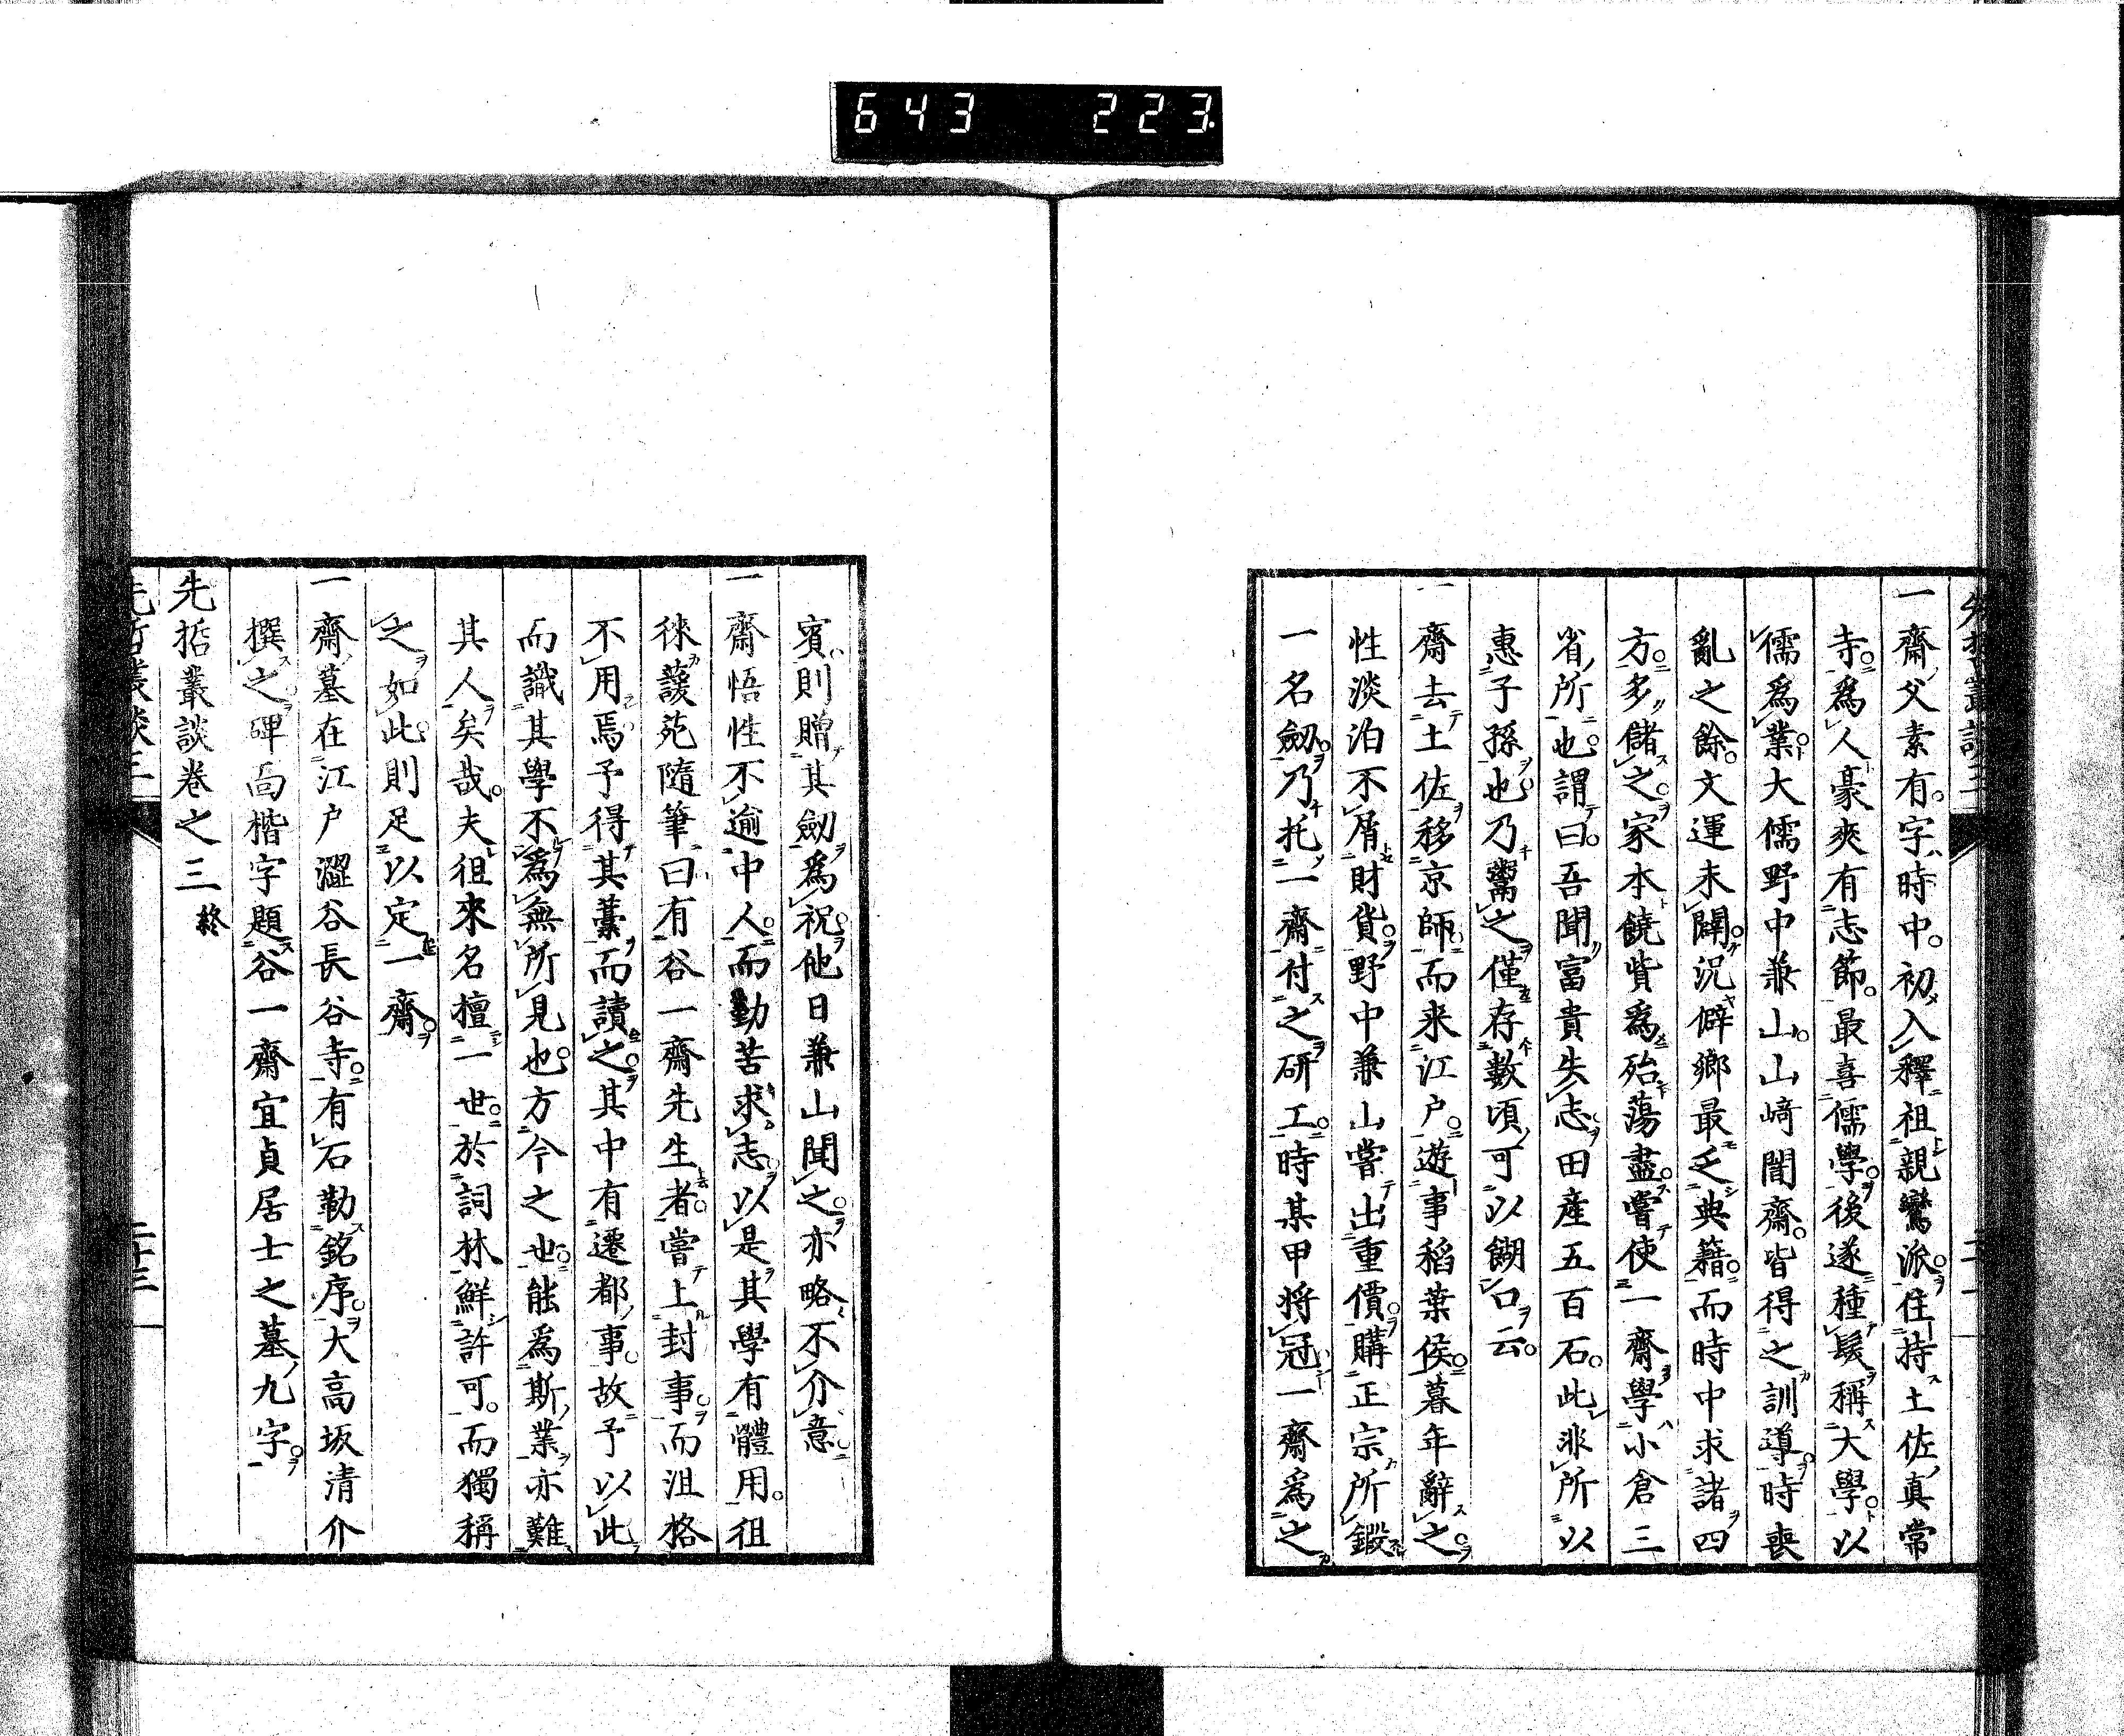 643 223
一齋父素有字時中初入釋祖親鸞派住持土佐真常
寺爲人豪爽有志節最喜儒學後遂種髮稱大學以
儒爲業大儒野中兼山山﨑闇齋皆得之訓導時喪
亂之餘文運未闢況僻鄉最乏典籍而時中求諸四
方多儲之家本饒貲爲殆蕩盡嘗使一齋學小倉三
省所也謂曰吾聞富貴失志田産五百石此非所以
惠子孫也乃鬻之僅存數頃可以餬口云
一齋去土佐移京師而来江户遊事稻葉侯暮年辭之
性淡泊不屑財貨野中兼山嘗出重價購正宗所鍛
一名劒乃托一齋付之研工時某甲将冠一齋爲之
賓則贈其劒爲祝他日兼山聞之亦略不介意
一齋悟性不逾中人而勤苦求志以是其學有體用徂
徠蘐苑隨筆曰有谷一齋先生者嘗上封事而沮格
不用焉予得其藁而讀之其中有遷都事故予以此
而識其學不爲無所見也方今之世能爲斯業亦難
其人矣哉夫徂來名擅一世於詞林鮮許可而獨稱
之如此則足以定一齋
一齋墓在江户澀谷長谷寺有石勒銘序大高坂清介
撰之碑面楷字題谷一齋宜貞居士之墓九字
先哲叢談卷之三 終